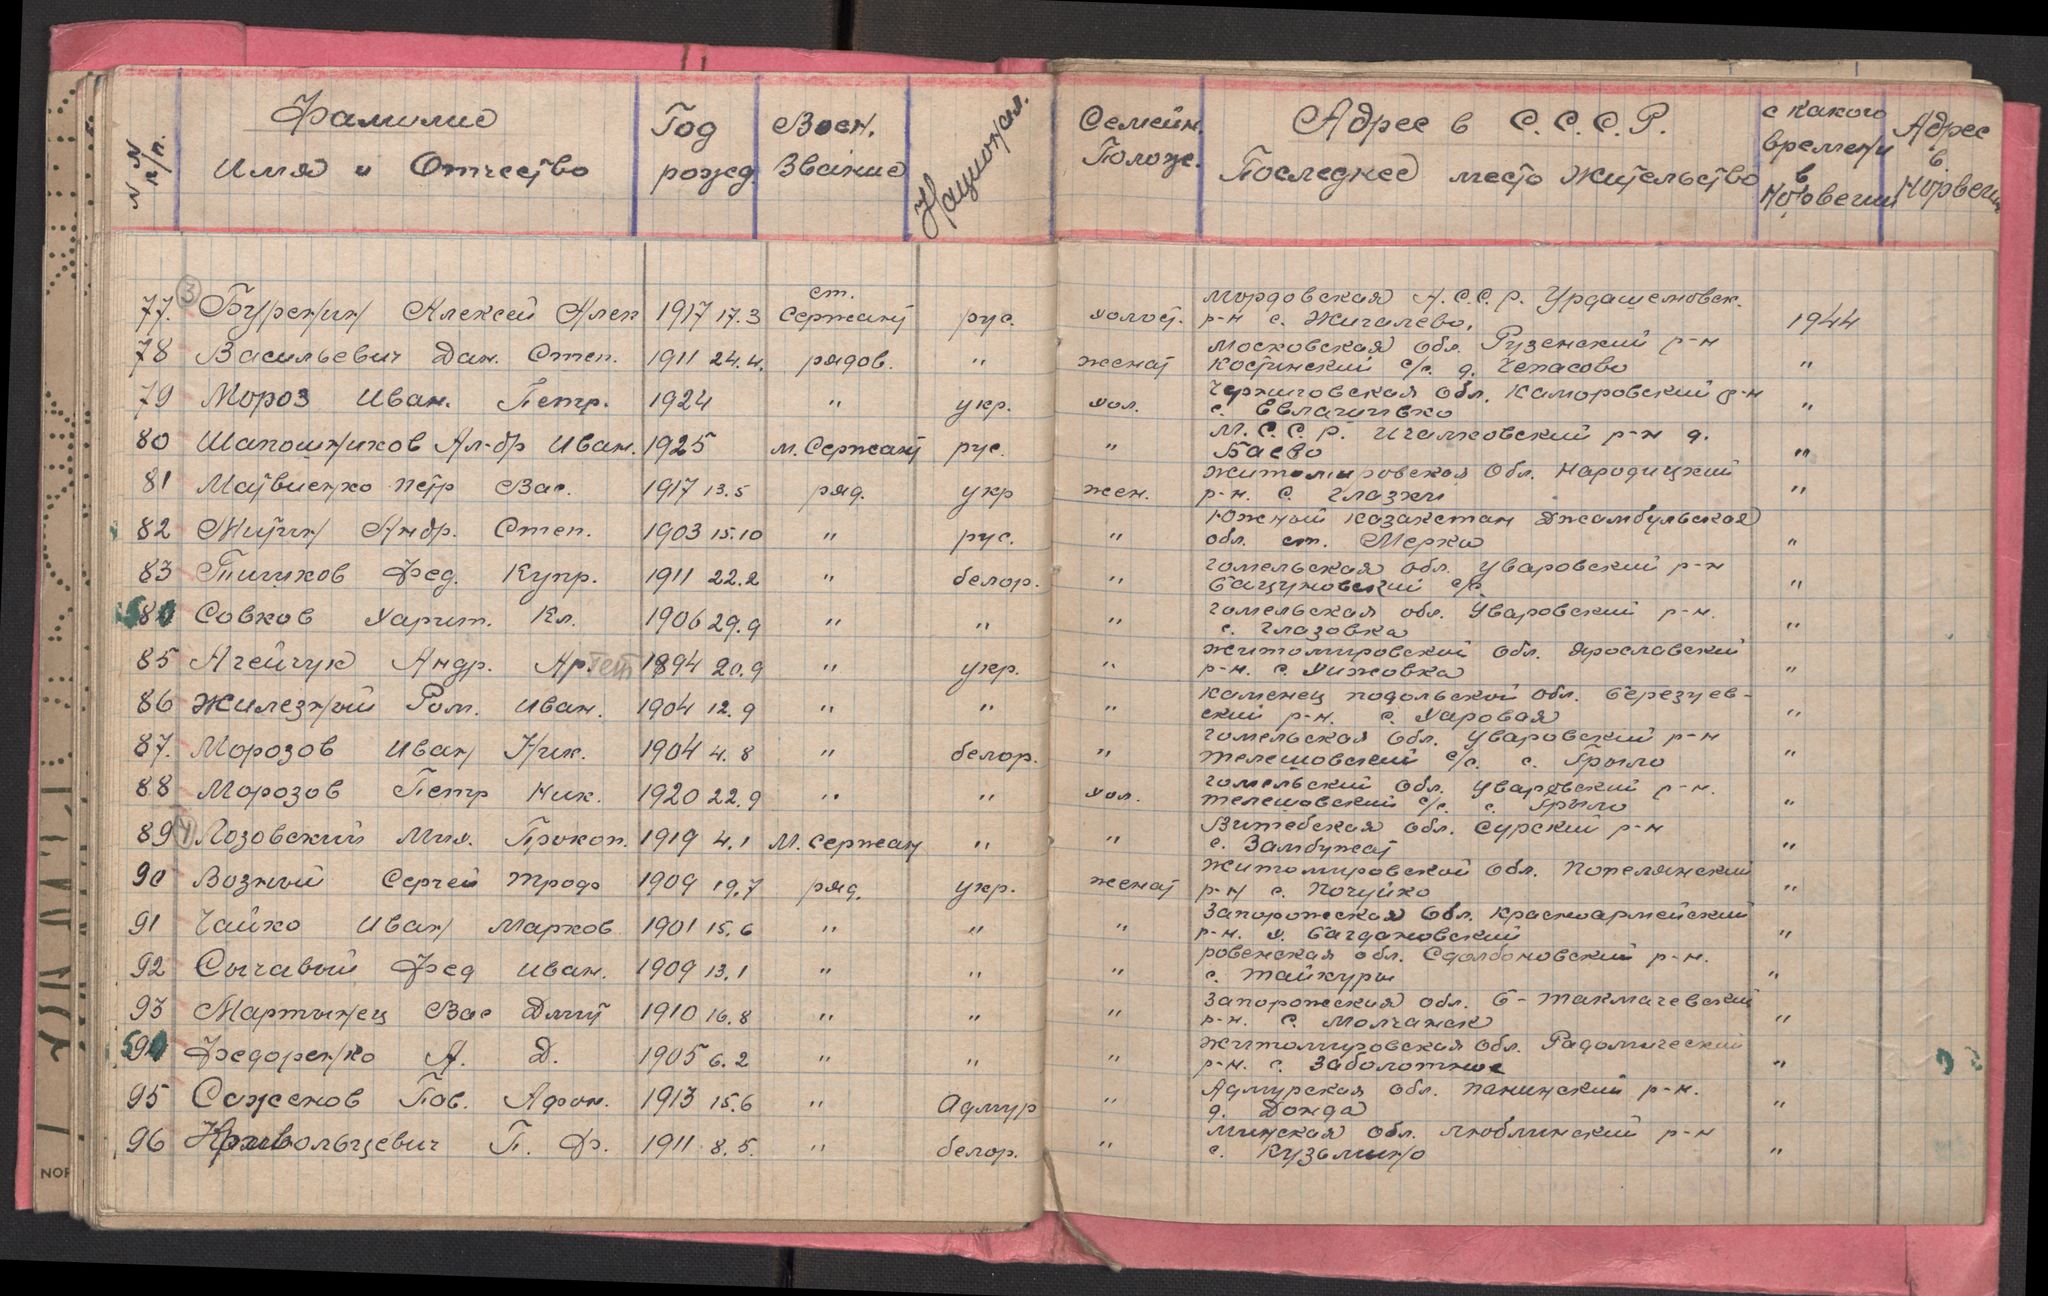 N N п/п.
Фамилие
Имя и Отчество
Год рожд
Воен. Звание
Национал.
Семейн. Полож.
Адрес в С.С.С.Р.
Последнее место жительство
с какого времени в Норвегии
Адрес в Норвегии
77. ③ Буренин Алексей Алек 1917 17.3 ст. Сержант рус. холост. Мордовская А.С.С.Р. Урдашемовск. р-н с. Жигалево, 1944
78 Васильевич Дан. Степ. 1911 24.4. рядов. " женат Московская обл. Рузенский р-н Костинский с/с. д. Чепасово "
79 Мороз Иван. Петр. 1924 " укр. хол. Черниговская обл. Каморовский р-н с. Евлагивко "
80 Шапошников Ал-др Иван. 1925 м. Сержант рус. " М.С.С.Р. Ичалковский р-н д. Баево "
81 Матвиенко петр Вас. 1917 13.5 ряд. укр жен. Житомировская обл. Народицкий р-н. с. Глазки "
82 Житин Андр. Степ. 1903 15.10 " рус. " Южный Казахстан Джамбульская обл. ст. Мерка "
83 Тишков Фед. Купр. 1911 22.2 " белор. " Гомельская обл. Уваровский р-н Бацуновский с/с. "
84 Совков Харит. Кл. 1906 29.9 " " " Гомельская обл. Уваровский р-н. с. Глазовка "
85 Агейчук Андр. Ар 1894 20.9 " укр. " Житомировской обл. Ярославский р-н. с. Хижовка "
86 Жилезный Ром. Иван. 1904 12.9 " " " Каменец подольской обл. Березуев- ский р-н. с. Харовая "
87. Морозов Иван Ник. 1904 4.8 " белор. " Гомельская обл. Уваровский р-н телешовский с/с. с. Грыло "
88 Морозов Петр Ник. 1920 22.9 " " хол. Гомельский обл. Уваровский р-н. телешовский с/с. с. Грыло "
89 Лозовский Мих. Прокоп. 1919 4.1 м. сержант " " Витебская обл. Сурский р-н с. Замбужат "
90 Возный Сергей Трофо 1909 19.7 ряд. укр. женат Житомировской обл. Попелянский р-н с. Почуйко "
91 Чайко Иван Марков 1901 15.6 " " " Запорожская обл. Красноармейский р-н. х. Багдановский "
92 Сычавый Фед Иван. 1909 13.1 " " " ровенская обл. Сдолбоновский р-н. с. Тайкуры "
93 Мартынец Вас Дмит 1910 16.8 " " " Запорожская обл. Б-Такмачевский р-н. с. Молчанск "
94 Федоренко А. Д. 1905 6.2 " " " Житомировская обл. Радомический р-н. с. Заболотные "
95 Саженов Пав. Афон. 1913 15.6 " Адмур " Адмурская обл. панинский р-н. д. Дожда "
96 Кривольцевич П. Ф. 1911 8.5. " белор. " Минская обл. Люблинский р-н с. Кузьмино "
NOR